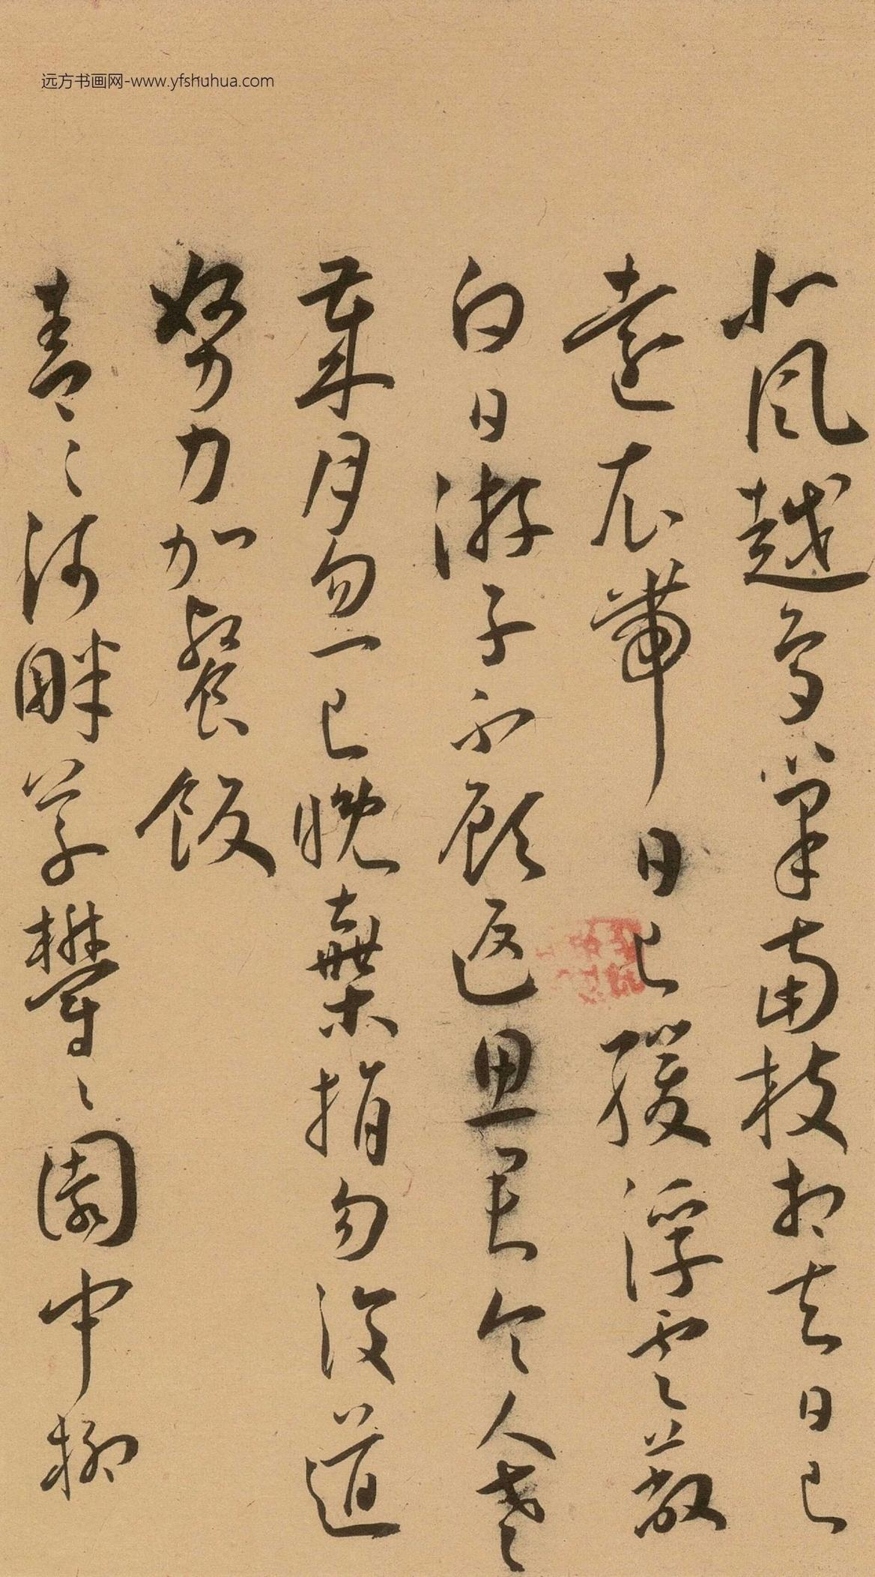 远方书画网-www.yfshuhua.com
北风越鸟巢南枝相去日已
遠衣带日已緩浮雲蔽
白日游子不顾返思君令人老
歲月忽一已晚棄捐勿復道
努力加餐飯
青々河畔草欝々園中柳